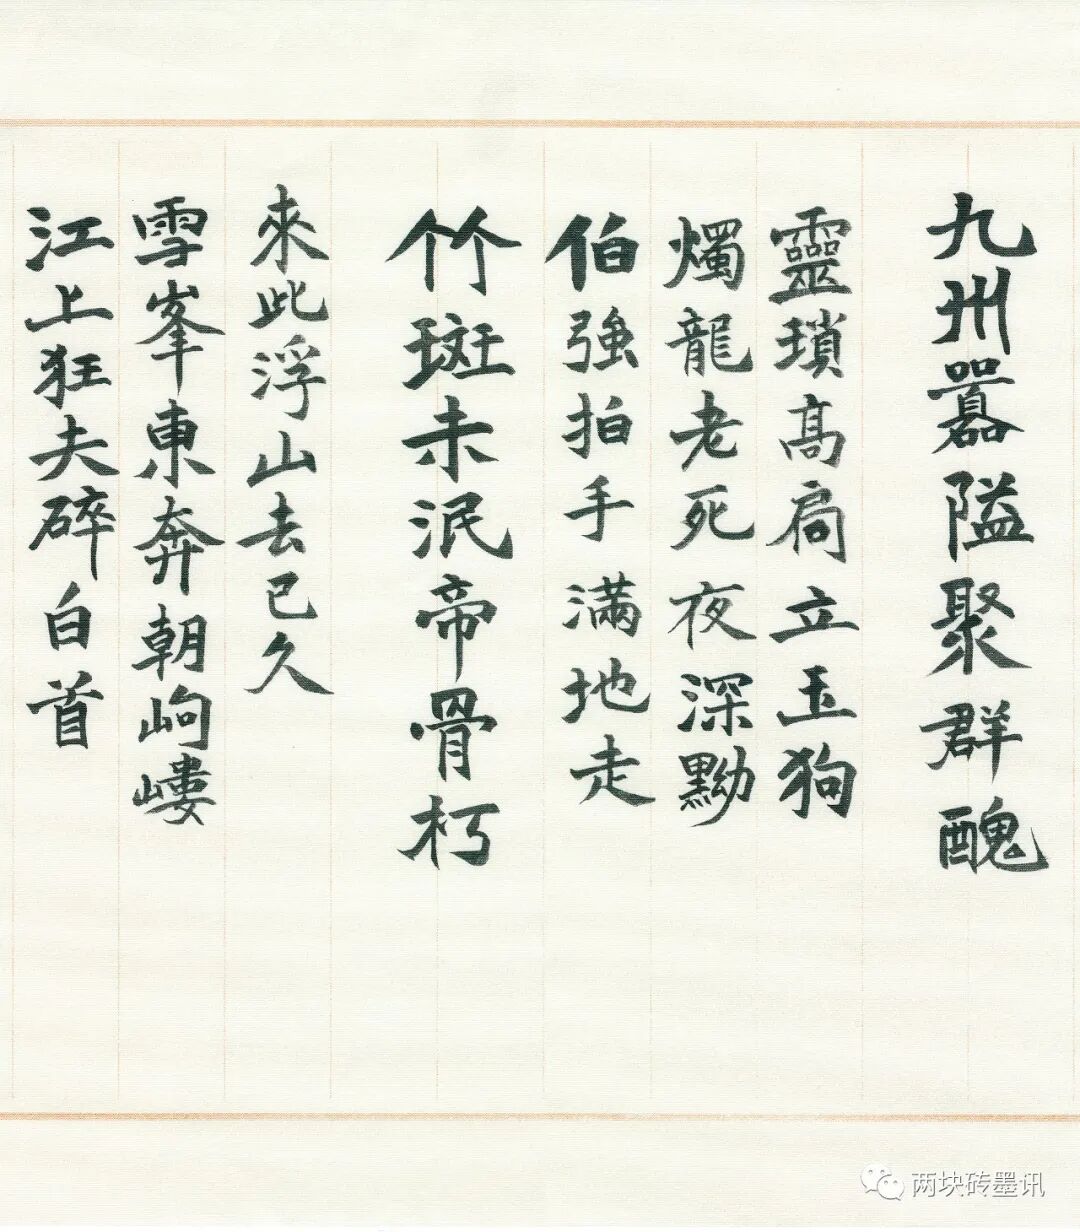 九州嚣隘聚群醜
靈瑣高扃立玉狗
燭龍老死夜深黝
伯強拍手滿地走
竹斑未泯帝骨朽
來此浮山去已久
雪峯東奔朝岣嶁
江上狂夫碎白首
两块砖墨讯